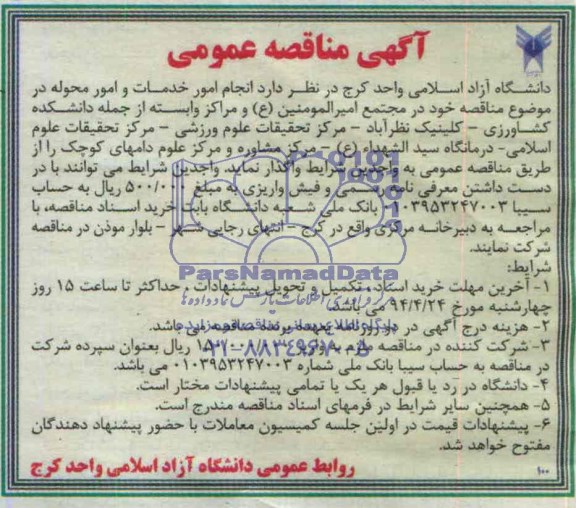 آگهی مناقصه عمومی
دانشگاه آزاد اسلامی واحد کرج در نظر دارد انجام امور خدمات و امور محوله در
موضوع مناقصه خود در مجتمع امیرالمومنین (ع) و مراکز وابسته از جمله دانشکده
کشاورزی - کلینیک نظرآباد - مرکز تحقیقات علوم ورزشی - مرکز تحقیقات علوم
اسلامی- درمانگاه سید الشهداء (ع) - مرکز مشاوره و مرکز علوم دامهای کوچک را از
طریق مناقصه عمومی به واجدین شرایط واگذار نماید. واجدین شرایط می توانند با در
دست داشتن معرفی نامه رسمی و فیش واریزی به مبلغ ۵۰۰/۰۰۰ ریال به حساب
سیبا ۰۱۰۳۹۵۳۲۴۷۰۰۳ بانک ملی شعبه دانشگاه بابت خرید اسناد مناقصه، با
مراجعه به دبیرخانه مرکزی واقع در کرج - انتهای رجایی شهر - بلوار موذن در مناقصه
شرکت نمایند.
شرایط:
۱- آخرین مهلت خرید اسناد، تکمیل و تحویل پیشنهادات، حداکثر تا ساعت ۱۵ روز
چهارشنبه مورخ ۹۴/۴/۲۴ می باشد.
۲- هزینه درج آگهی در دو روزنامه بعهده برنده مناقصه می باشد.
۳- شرکت کننده در مناقصه ملزم به واریز ریال بعنوان سپرده شرکت
در مناقصه به حساب سیبا بانک ملی شماره ۰۱۰۳۹۵۳۲۴۷۰۰۳ می باشد.
۴- دانشگاه در رد یا قبول هر یک یا تمامی پیشنهادات مختار است.
۵- همچنین سایر شرایط در فرمهای اسناد مناقصه مندرج است.
۶- پیشنهادات قیمت در اولین جلسه کمیسیون معاملات با حضور پیشنهاد دهندگان
مفتوح خواهد شد.
روابط عمومی دانشگاه آزاد اسلامی واحد کرج
۱۰۰
ParsNamadData
۰۲۱-۸۸۳۴۹۶۷۰-۵